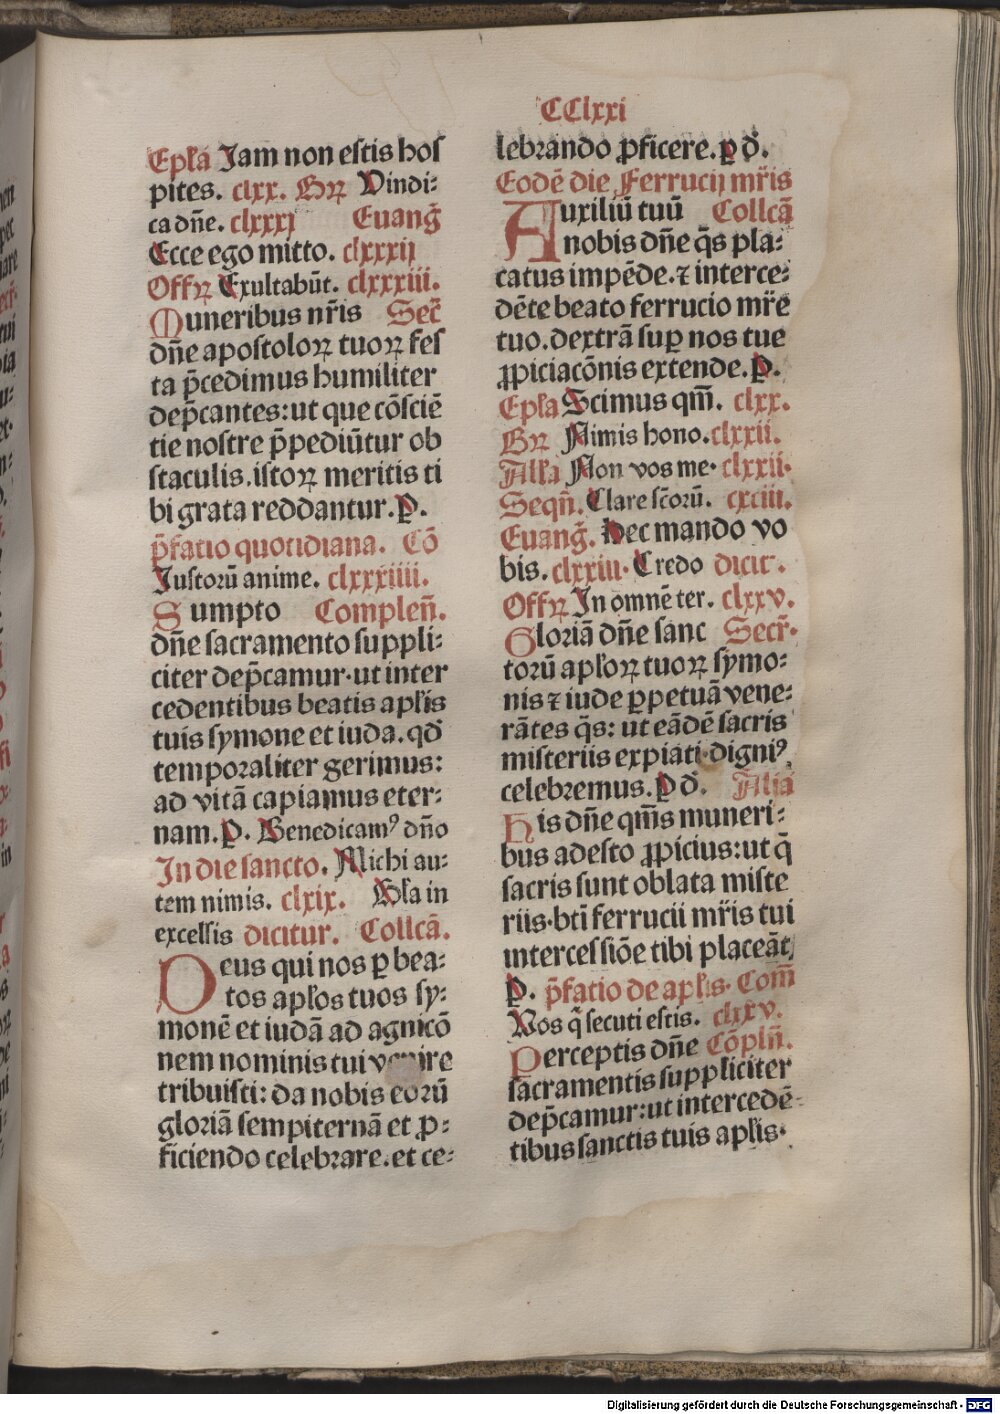 CClxxi
Epła Jam non estis hos
pites. clxx. Grꝛ Vindi-
ca dn̄e. clxxxj Euang̃
Ecce ego mitto. clxxxij
Offꝝ Exultabūt. clxxxiii.
Muneribus nr̄is Secr̄
dn̄e apostoloꝝ tuoꝝ fes
ta p̄cedimus humiliter
dep̄cantes: ut que cōsciē
tie nostre p̄pediūtur ob
staculis. istoꝝ meritis ti
bi grata reddantur. P.
p̄fatio quotidiana. Cō
Iustorū anime. clxxxiiii.
Sumpto Complen̄.
dn̄e sacramento suppli-
citer dep̄camur. ut inter
cedentibus beatis apłis
tuis symone et iuda. qd̕
temporaliter gerimus:
ad vitā capiamus eter-
nam. P. Benedicamꝰ dn̄o
In die sancto. Michi au-
tem nimis. clxix. Gła in
excelsis dicitur. Collcā.
Deus qui nos ꝑ bea-
tos apłos tuos sy-
monē et iudā ad agnicō
nem nominis tui venire
tribuisti: da nobis eorū
gloriā sempiternā et ꝓ-
ficiendo celebrare. et ce-
lebrando ꝓficere. ꝑ d̕.
Eodē die Ferrucij mr̄is
Auxiliū tuū Collcā
nobis dn̄e q̄s pla-
catus impēde. ⁊ interce-
dēte beato ferrucio mr̄e
tuo. dextrā suꝑ nos tue
ꝓpiciacōnis extende. P.
Epła Scimus qm̄. clxx.
Grꝛ Nimis hono. clxxii.
Alła Non vos me. clxxii.
Seqn̄. Clare sc̄orū. cxciii.
Euang̃. Hec mando vo
bis. clxxiii. Credo dicit̕.
Offꝝ In omnē ter. clxxv.
Gloriā dn̄e sanc Secr̄.
torū apłoꝝ tuoꝝ symo-
nis ⁊ iude ꝑpetuā vene-
rātes q̄s: ut eādē sacris
misteriis expiati. digniꝰ
celebremus. P d̕. Aliā
His dn̄e qm̄s muneri-
bus adesto ꝓpicius: ut q̄
sacris sunt oblata miste
riis. bt̄i ferrucii mr̄is tui
intercessiōe tibi placeāt,
P. p̄fatio de apłis. Com̄
Vos q̄ secuti estis. clxxv.
Perceptis dn̄e Cōpln̄.
sacramentis suppliciter
dep̄camur: ut intercedē-
tibus sanctis tuis apłis.
Digitalisierung gefördert durch die Deutsche Forschungsgemeinschaft - DFG